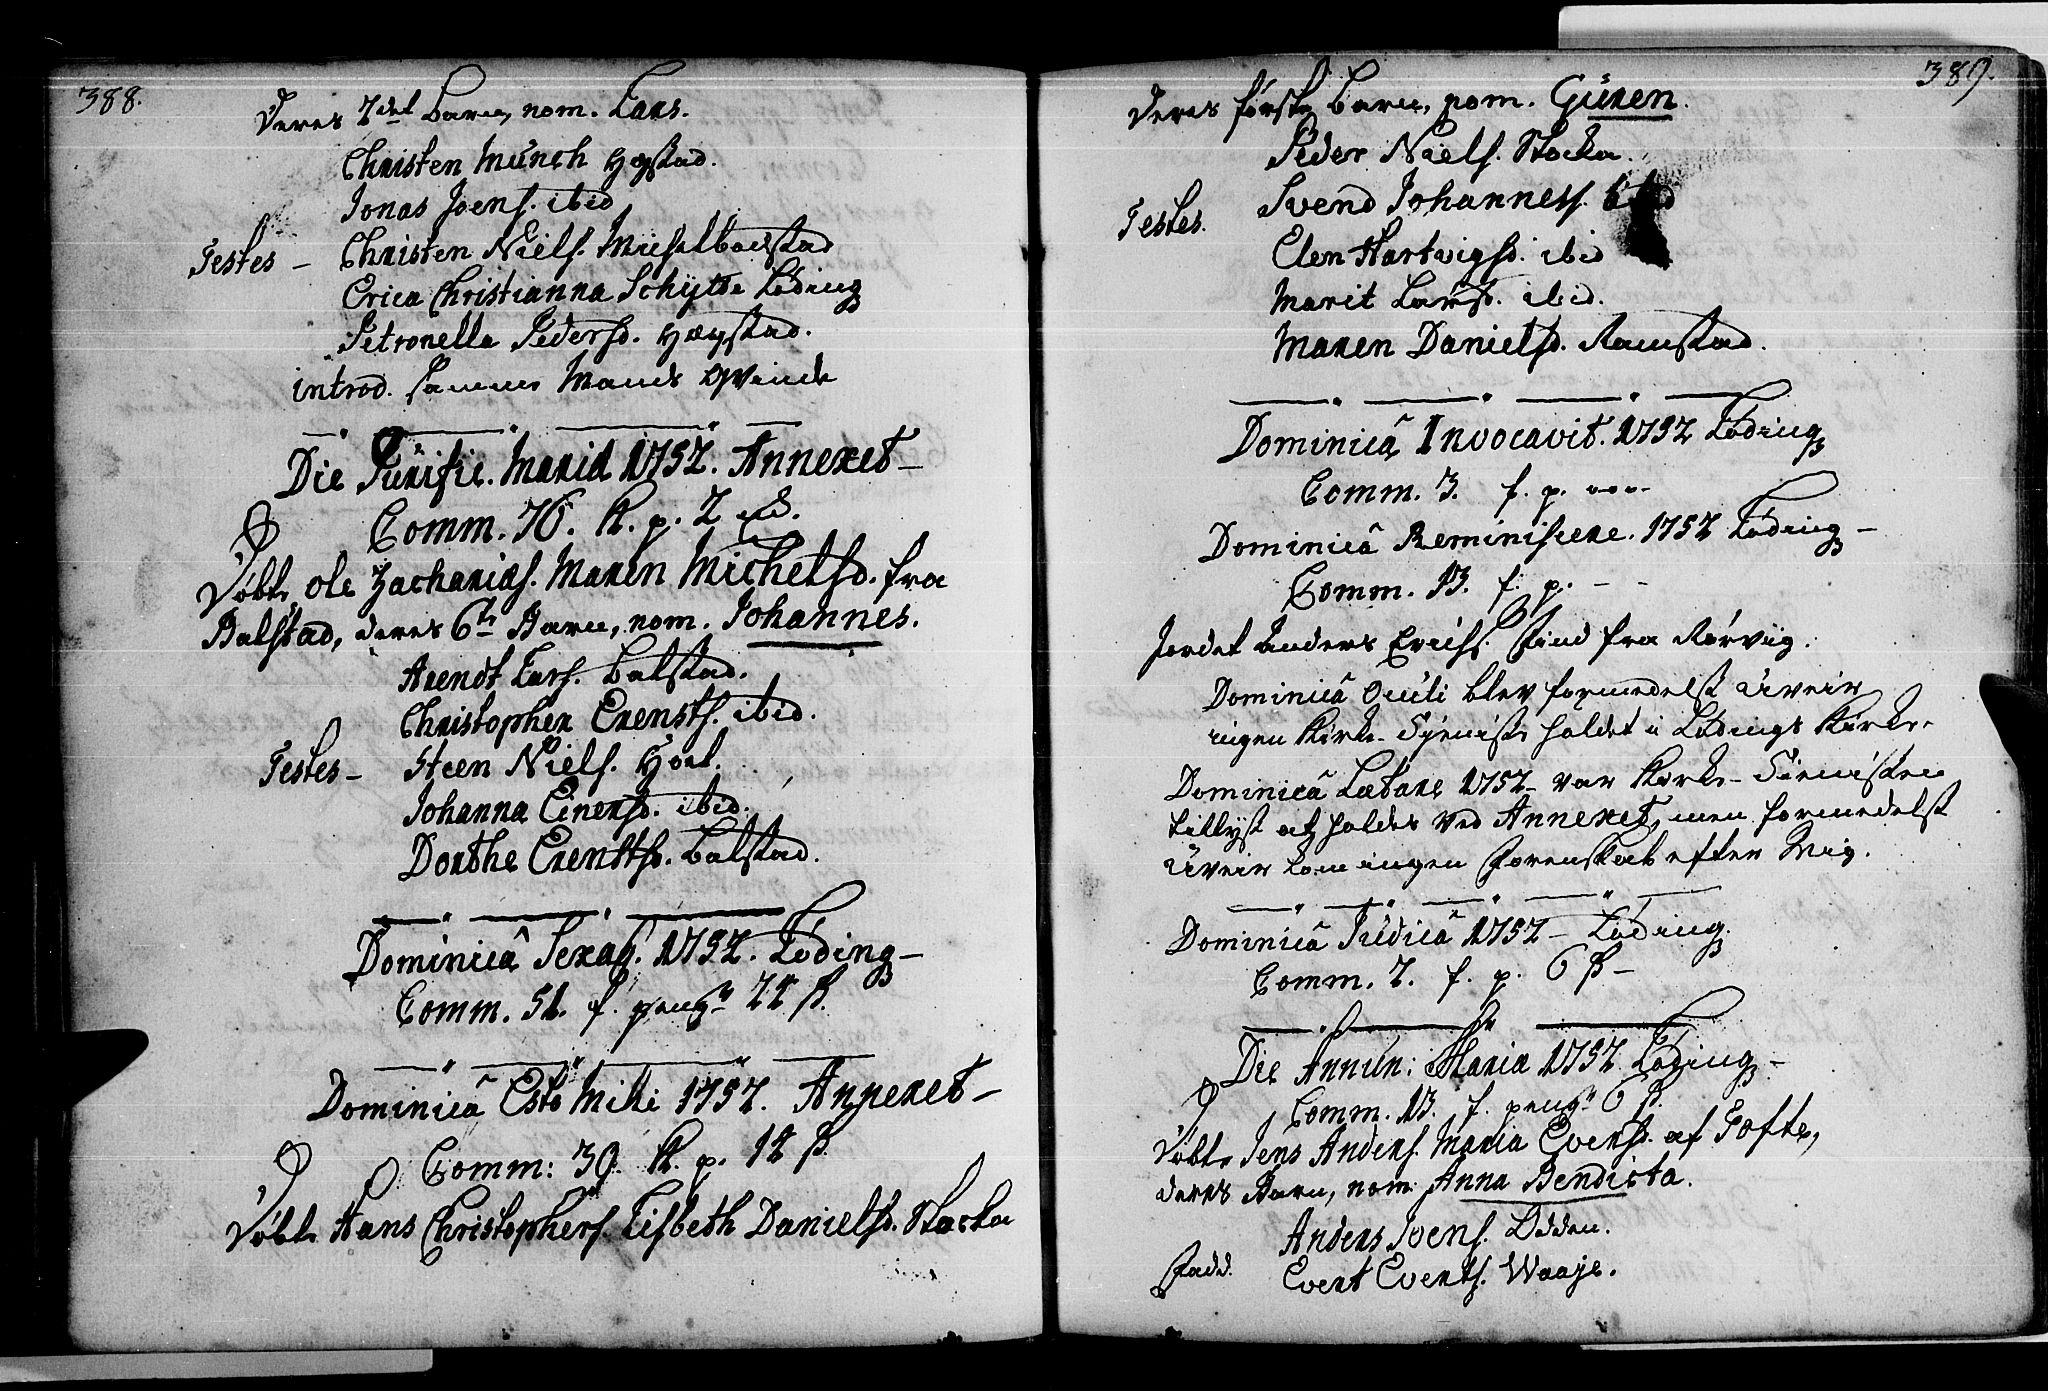 388.
Deres 7det Barn, nom. Lars.
Christen Munch Hystad.
Jonas Joens. ibid
Testes – Christen Niels. Michelboestad
Erica Christianna Schytte Löding
Petronella Pedersd. Hægstad.
introd. samme Mands Qvinde
Die Purific. Mariæ 1752. Annexet –
Comm. 76. K. p. 2
Döbt Ole Zacharias. Maren Michelsd. fra
Balstad, deres 6te Barn, nom. Johannes.
Arendt Lars. Balstad.
Christopher Erensts. ibid.
Testes – Steen Niels. Hoel.
Johanna Einersd. ibid.
Dorthe Erenstsd. Balstad.
Dominicâ Sexag. 1752. Löding –
Comm. 51. f. peng. 22 ß.
Dominicâ Esto Mihi 1752. Annexet –
Comm: 39. K. p. 12 ß.
Döbt Hans Christophers. Lisbeth Danielsd. Stocka
389.
Deres förste Barn, nom. Guren.
Peder Niels. Stocka.
Testes. Svend Johanness. ibid
Elen Hartvigsd. ibid
Marit Larsd. ibid.
Maren Danielsd. Ramstad.
Dominicâ Invocavit. 1752 Löding
Comm. 3. f. p. ---
Dominicâ Reminiscere. 1752 Löding –
Comm. 13. f. p. – –
Jordet Anders Erichs. Find fra Rörviig.
Dominicâ Oculi blev formedelst Uveir
ingen Kirke-Tjeniste holdet i Lödings Kirke.
Dominicâ Lætare 1752 – var Kirke-Tienisten
tillyst at holdes ved Annexet, men formedelst
Uveir kom ingen Forenskab efter Mig.
Dominicâ Judica 1752 – Löding.
Comm. 2. f. p. 6 ß –
Die Annun: Mariæ 1752 Löding –
Comm. 13. f. peng. 6 ß.
Döbt Jens Anders. Maria Eversd. af Tofte,
deres Barn, nom: Anna Bendicta.
Anders Ivens. Odden.
Fadd. Evert Everts. Waaje.